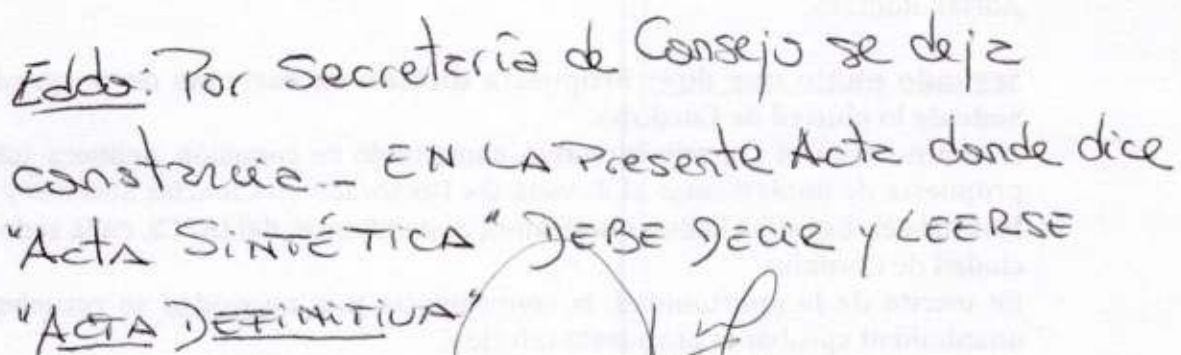 Eddo: Por Secretaría de Consejo se deja
constancia - EN LA Presente Acta donde dice
Acta SINTÉTICA" DEBE DECIR y LEERSE
"ACTA DEFINITIVA"